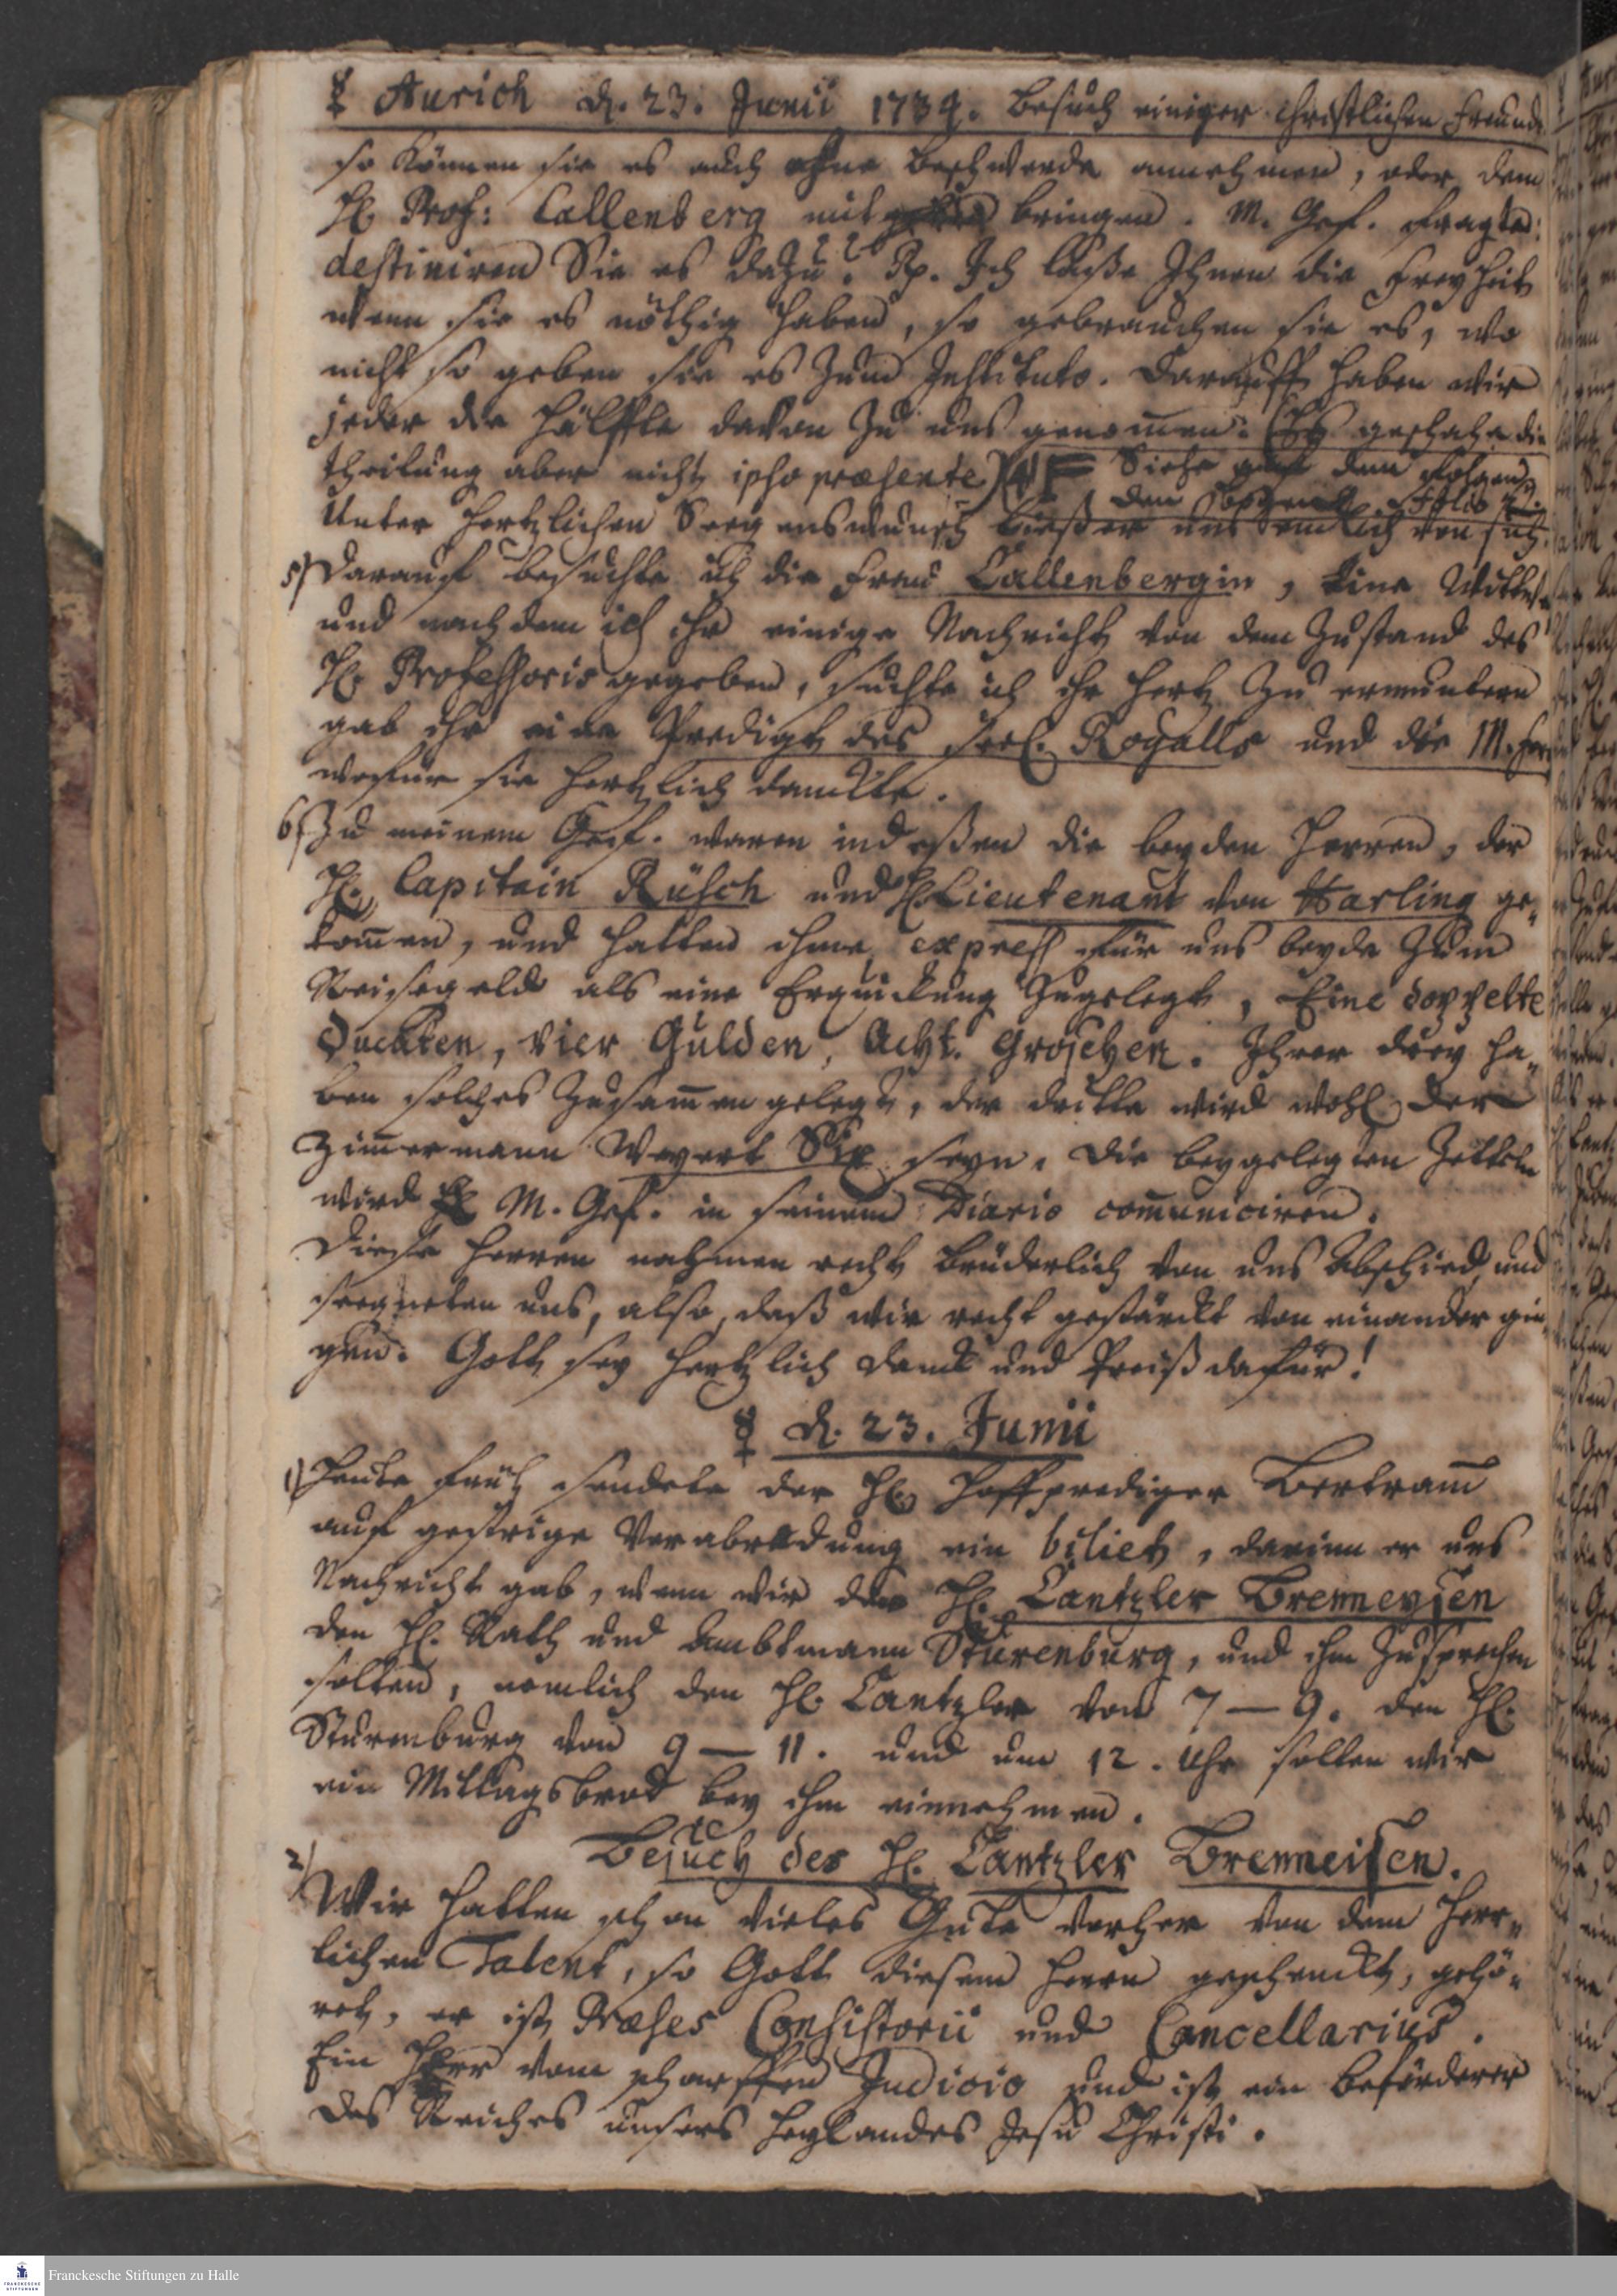 ☿ Aurich d. 23. Junii 1734. Besuch einiger christlichen Freunde
so können sie es auch ohne Beschwerde annehmen, oder dem
H. Prof: Callenberg mit bringen. M. Gef. fragte:
destiniren Sie es dazu? Rp. Ich laße Ihnen die Freyheit
wenn sie es nöthig haben, so gebrauchen sie es, wo
nicht so geben sie es zum Instituto. Darauff haben wir
jeder die Hälffte davon zu uns genommen. (Es geschahe die
theilung aber nicht ipso præsente) Siehe auf dem folgen
den Folio
Unter hertzlichen Seegenswunsch ließ er uns endlich von sich.
5) Darauf besuchte ich die Frau Callenbergin, eine Wittwe
und nachdem ich ihr einige Nachricht von dem Zustand des
H. Professoris gegeben, suchte ich ihr Hertz zu ermuntern
gab ihr eine Predigt des seel. Rogalls und die M.
wofür sie hertzlich danckte.
6) Zu meinem Gef. waren indeßen die beyden Herren, der
H. Capitain Rüsch und H. Lieutenant von Harling ge„
kommen, und hatten ihme express für uns beyde zum
Reisegelde als eine Erquickung zugelegt, Eine doppelte
Ducaten, vier Gulden, Acht Groschen. Ihrer drey ha„
ben solches zusammen gelegt, der dritte wird wohl der
Zimmermann Weyert Six seyn. Die beygelegten Zettuln
wird M. Gef. in seinem Diario communiciren.
Diese Herren nahmen recht brüderlich von uns Abschied, und
seegneten uns, also, daß wir recht gestärckt von einander gin„
gen. Gott sey hertzlich Danck und Preiß dafür!
☿ d. 23. Junii
1) Heute früh sendete der H. Hoffprediger Bertram
auf gestrige Verabredung ein billet, darinn er uns
Nachricht gab, wenn wir den H. Cantzler Brenneysen
den H. Rath und Ambtmann Sturenburg, und ihm zusprechen
solten, nemlich den H. Cantzler von 7 — 9. den H.
Sturenburg von 9 — 11. und um 12. Uhr solten wir
ein Mittagsbrod bey ihm einnehmen.
Besuch des H. Cantzler Brenneisen.
2) Wir hatten schon vieles Gute vorher von dem herr„
lichen Talent, so Gott diesem Herrn geschenckt, gehö„
ret, er ist Præses Consistorii und Cancellarius.
Ein Herr vom scharffen Judicio und ist ein Beförderer
des Reiches unsers Heylandes Jesu Christi.
Franckesche Stiftungen zu Halle